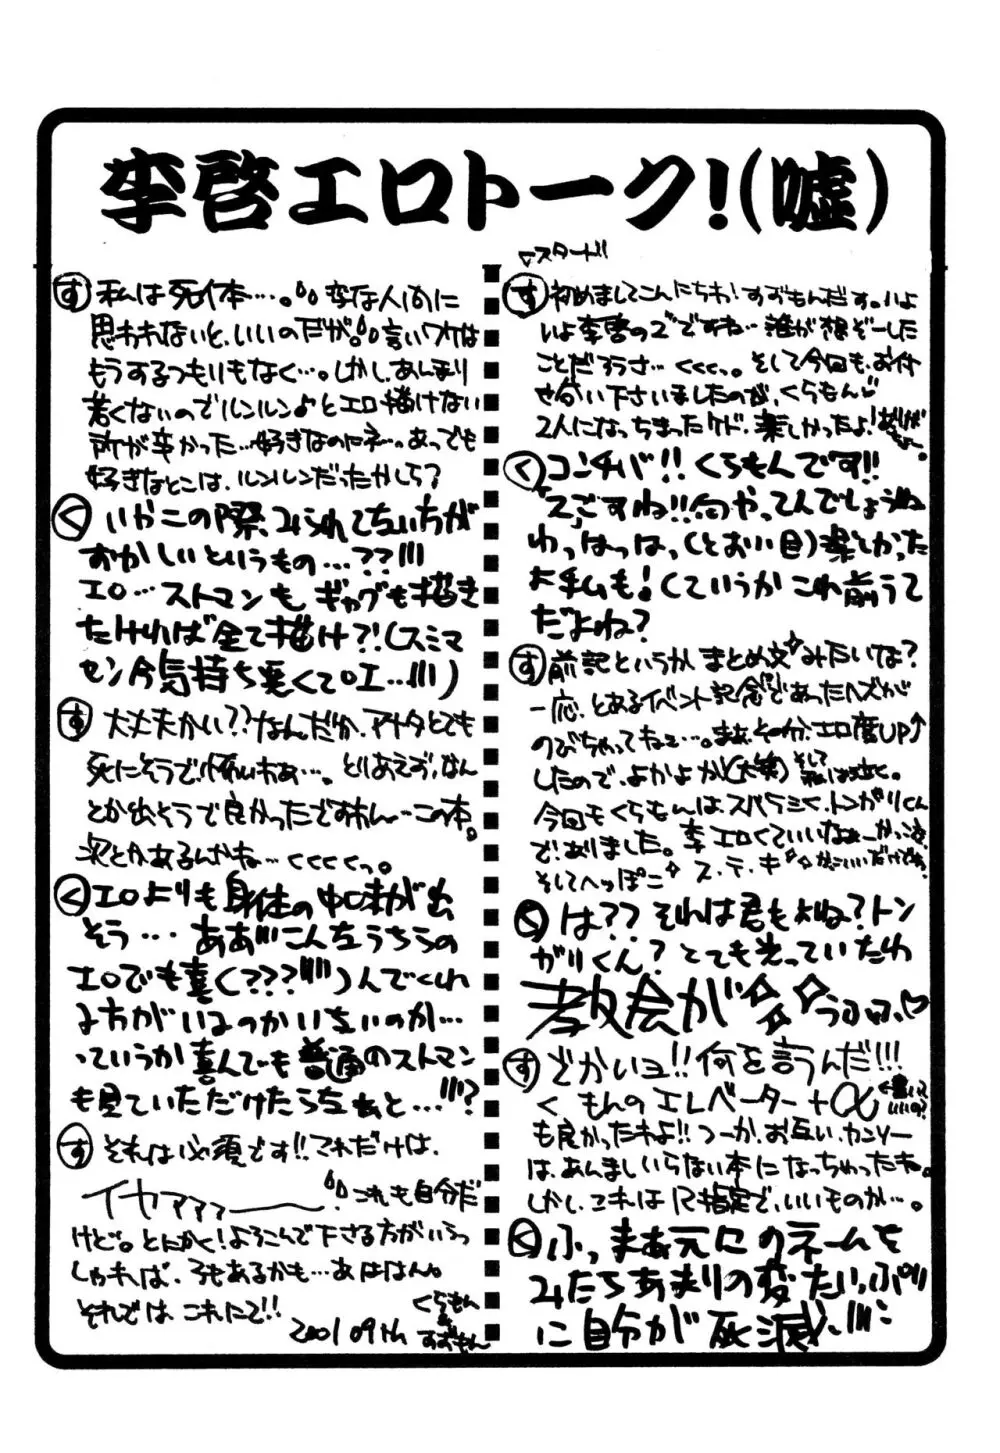 李啓エロトーク!(嘘)
▽スタート!!
す 初めましてこんにちわ!すずもんだす。いよ
いよ李啓の2ですね…誰が想ぞーした
ことだろうさ…くくくっ。そして今回も、お付
せ合い下さいましたのが、くらもん♡
2人になっちまったケド、楽しかったよ!
く コンチバ!!くらもんです!!
「2」ごすね!!何やってんでしょうね
わっはっはっ(とおい目)楽しかった
よ私も!(ていうかこれ前うて
だよね?
す 前記というかまとめ文みたいな?
一応、とあるイベント記念であったハズが
のびちゃってねェ…。まぁ、その分、エロ度UP↑
したので、よかよか(大笑)そして私は泣く。
今回もくらもんは、スバラシく、トンガリくん
で、ありました。李エロくていいなぁーかっこ良
そしてへっぽこ ス・テ・キ
く は??それは君もよね?トン
ガリくん?とても光っていたわ
教会が うふふ♡
す どかいョ!!何を言うんだ!!!
く もんのエレベーター+α ←書いていいの?
も良かったわよ!!つーか、お互いカンソー
は、あんましいらない本になっちゃったね。
しかし、コレは12指定で、いいものか…。
く ふっまぁ元にのネームを
みたらあまりの変たいっぷり
に自分が死滅!!!
す 私は死体…。変な人間に
思われないと、いいのだが。言いワケは
もうするつもりもなく…。しかし、あんまり
若くないのでルンルン♪とエロ描けない
所が辛かった…好きなのねェ…あっでも
好きなとこは、ルンルンだったかしら?
く いやこの際、みられてないちが
おかしいというもの…??!!!
エロ…ストマンも、ギャグも描き
たければ全て描け?!(スミマ
セン今気持ち悪くてロエ…!!!)
す 大丈夫かい??なんだか、アナタとても
死にそうで怖いわぁ…。とりあえず、なん
とか出そうで良かったですねん…この本。
次とかあるんかね…くくくくっ。
く エロよりも身体の中味が出
そう… ああ!!こんなうちらの
エロでも喜(???!!!)んでくれ
る方がいるのかいないのか…
っていうか喜んでも普通のストマン
も見ていただけたらなぁと…!!!?
す それは必須です!!これだけは、
イヤァァァ――― これも自分だ
けど。とにかく!よろこんで下さる方がいらっ
しゃれば、3もあるかも…あははん。
それでは これにて!!
くらもん
&
すずもん
2001 09 th